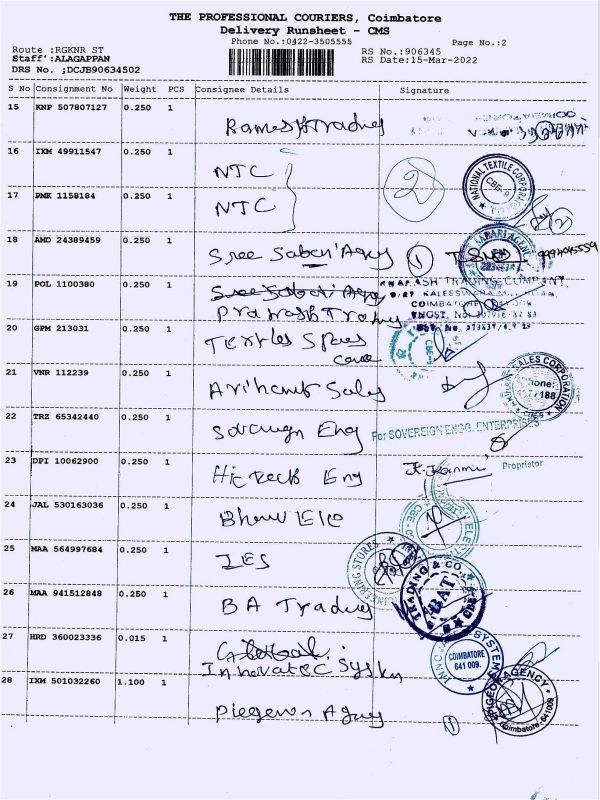 THE PROFESSIONAL COURIERS, Coimbatore
Delivery Runsheet - CMS
Phone No.:0422-3505555
Page No.:2
Route :RGKNR ST
RS No.:906345
Staff :ALAGAPPAN
RS Date:15-Mar-2022
DRS No. ;DCJB90634502
S No Consignment No Weight PCS Consignee Details Signature
15 KNP 507807127 0.250 1
16 IXM 49911547 0.250 1
NTC
2
NATIONAL TEXTILE CORPORA
CBE-9
17 PNK 1158184 0.250 1
NTC
18 AMD 24389459 0.250 1
Sree Sabari Agny
1
19 POL 1100380 0.250 1
Sree Sabari Agny
Prakash Trading
KASH TRADING COMPANY,
COIMBATORE
20 GPM 213031 0.250 1
Textles Spares
21 VNR 112239 0.250 1
Arihant Sales
SALES CORPORATION
Phone:
22 TRZ 65342440 0.250 1
Soverign Eng
For SOVEREIGN ENGG. ENTERPRISES
Proprietor
23 DPI 10062900 0.250 1
Hi Teck Eng
24 JAL 530163036 0.250 1
25 MAA 564997684 0.250 1
IES
STORES
26 MAA 941512848 0.250 1
BA Trading
TRADING & CO.
BAT
27 HRD 360023336 0.015 1
Global
Innovatec System
COIMBATORE
641 009.
28 IXM 501032260 1.100 1
Piegeon Agny
1
AGENCY
Coimbatore-641009